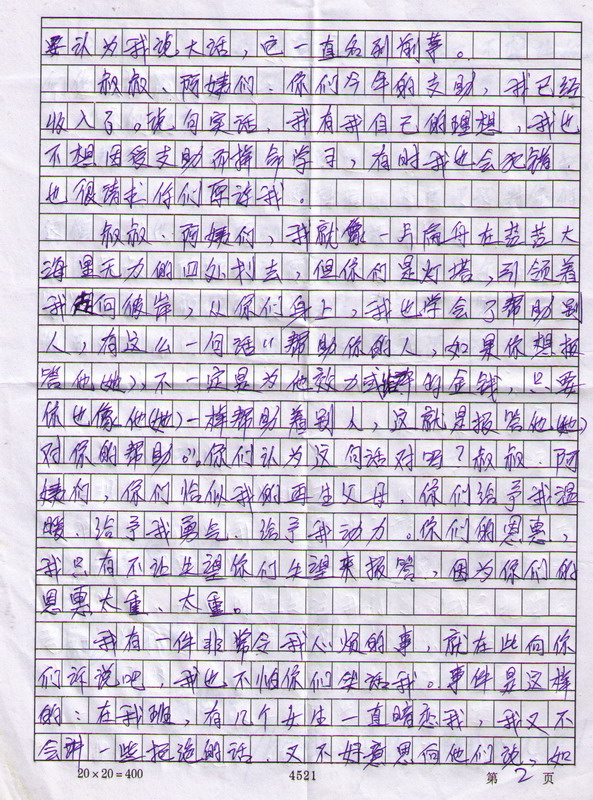 要认为我说大话，它一直名列前茅。
叔叔、阿姨们：你们今年的支助，我已经
收入了。说句实话，我有我自己的理想，我也
不想因受支助而拼命学习，有时我也会犯错，
也很请求你们原谅我。
叔叔、阿姨们，我就像一片扁舟在茫茫大
海里无力的四处划去，但你们是灯塔，引领着
我走向彼岸，从你们身上，我也学会了帮助别
人，有这么一句话“帮助你的人，如果你想报
答他(她)，不一定要为他效力或的金钱，只要
你也像他(她)一样帮助着别人，这就是报答他(她)
对你的帮助。”你们认为这句话对吗？叔叔、阿
姨们，你们恰似我的再生父母，你们给予我温
暖、给予我勇气、给予我动力。你们的恩惠，
我只有不让失望你们失望来报答，因为你们的
恩惠太重、太重。
我有一件非常令我心烦的事，就在此向你
们诉说吧，我也不怕你们笑话我。事件是这样
的：在我班，有几个女生一直暗恋我，我又不
会讲一些拒绝的话，又不好意思向他们说，如
20×20=400 4521 第2页